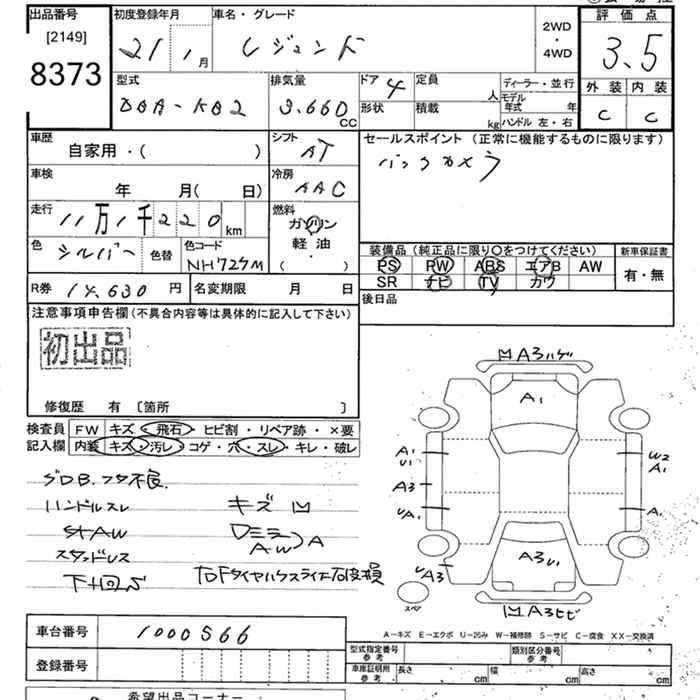 出品番号 初度登録年月 車名・グレード 2WD・4WD 評価点
[2149] 21 1月 レジェンド 3.5
8373 外装 内装
型式 排気量 ドア 4 定員 人 ディーラー・並行
DBA-KB2 3.660 CC 形状 積載 kg モデル年式 年 C C
ハンドル 左・右
車歴 シフト セールスポイント (正常に機能するものに限ります)
自家用・( ) AT バックカメラ
車検 冷房
年 月( 日) AAC
走行 11万1千220km 燃料
ガソリン
軽油
( ・ )
色 シルバー 色替 色コード NH727M
装備品 (純正品に限り○をつけてください) 新車保証書
PS PW ABS エアB AW 有・無
SR ナビ TV カワ
R券 14,630円 名変期限 月 日 後日品
注意事項申告欄 (不具合内容等は具体的に記入して下さい)
初出品
修復歴 有 〔箇所 〕
検査員 FW キズ・飛石・ヒビ割・リペア跡・×要
記入欄 内装 キズ・汚レ・コゲ・穴・スレ・キレ・破レ
ハンドルスレ キズ
スタッドレス AW A
下廻S
A3ハゲ
A1
A1 U1 W2 A1
A3
UA1 A1
A3U1
UA3
スペア
A3ヒビ
A-キズ E-エクボ U-凹み W-補修跡 S-サビ C-腐食 XX-交換済
車台番号 1000566
型式指定番号 参考 類別区分番号 参考
登録番号 車庫証明用 参考 長さ cm 幅 cm 高さ cm
希望出品コーナー